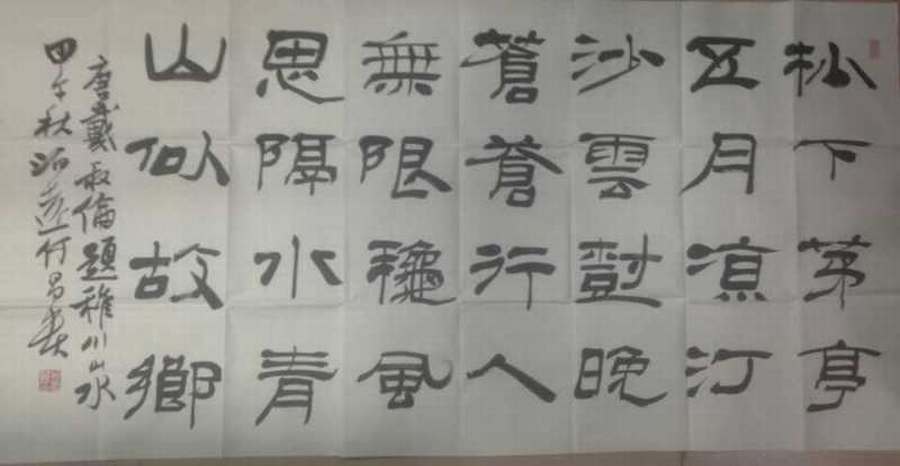 松下茅亭
五月涼汀
沙雲樹晚
蒼蒼行人
無限穐風
思隔水青
山似故鄉
唐戴叔倫題稚川山水
甲午秋